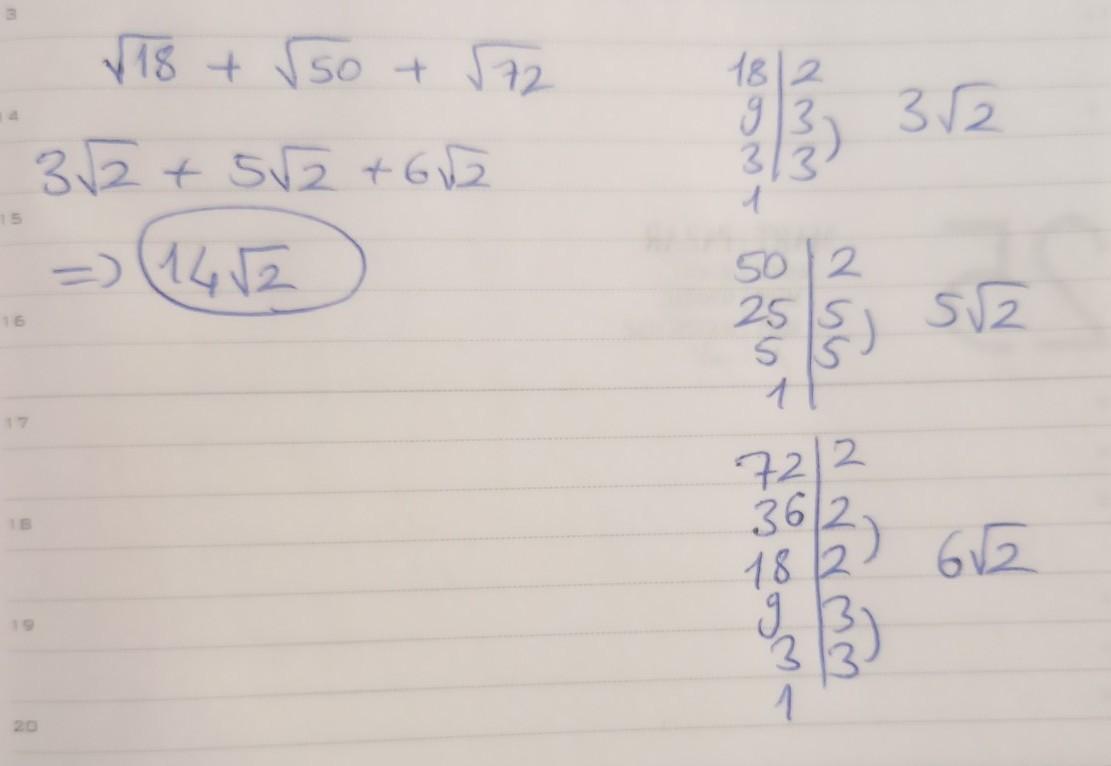 3
√18 + √50 + √72
14
3√2 + 5√2 + 6√2
15
=> 14√2
16
17
18
19
20
18 | 2
9 | 3
3 | 3
1
3√2
50 | 2
25 | 5
5 | 5
1
5√2
72 | 2
36 | 2
18 | 2
9 | 3
3 | 3
1
6√2
25